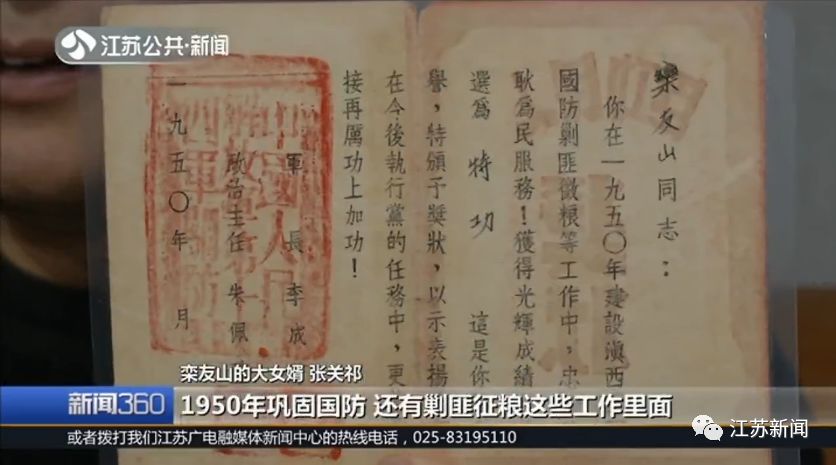 江苏公共·新闻
欒友山同志：
你在一九五〇年建設滇西
國防剿匪徵粮等工作中，忠
耿为民服務！獲得光輝成績
選爲 特功 這是你
譽，特頒予奬狀，以示表揚
在今後執行黨的任務中，更
接再厲功上加功！
軍長 李成
政治主任 朱佩
一九五〇年 月
栾友山的大女婿 张关祁
新闻360
1950年巩固国防 还有剿匪征粮这些工作里面
或者拨打我们江苏广电融媒体新闻中心的热线电话，025-83195110
江苏新闻